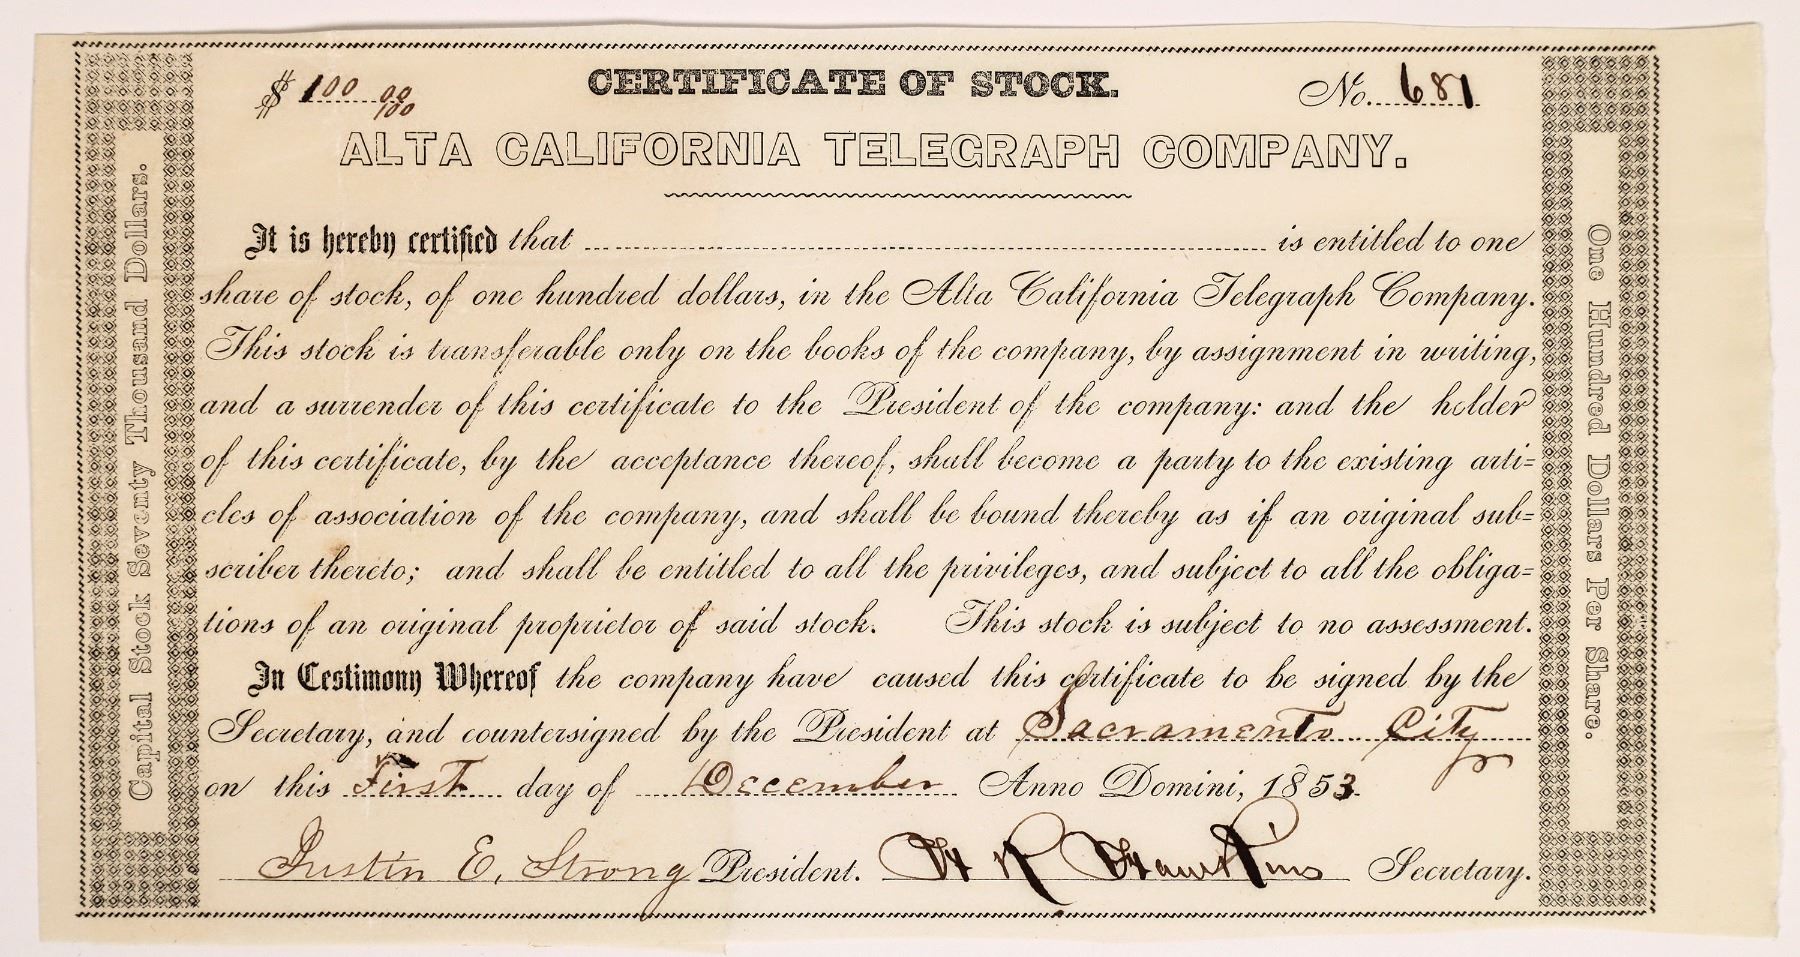 $ 100 00/100
CERTIFICATE OF STOCK.
No. 681
ALTA CALIFORNIA TELEGRAPH COMPANY.
Capital Stock Seventy Thousand Dollars.
It is hereby certified that is entitled to one
share of stock, of one hundred dollars, in the Alta California Telegraph Company.
This stock is transferable only on the books of the company, by assignment in writing,
and a surrender of this certificate to the President of the company: and the holder
of this certificate, by the acceptance thereof, shall become a party to the existing arti=
cles of association of the company, and shall be bound thereby as if an original sub=
scriber thereto; and shall be entitled to all the privileges, and subject to all the obliga=
tions of an original proprietor of said stock. This stock is subject to no assessment.
In Testimony Whereof the company have caused this certificate to be signed by the
Secretary, and countersigned by the President at Sacramento City
on this First day of December Anno Domini, 1853.
Justin E. Strong President. W R Hawkins Secretary.
One Hundred Dollars Per Share.